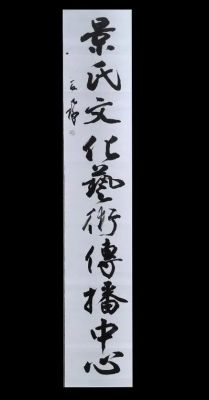 景氏文化藝術傳播中心